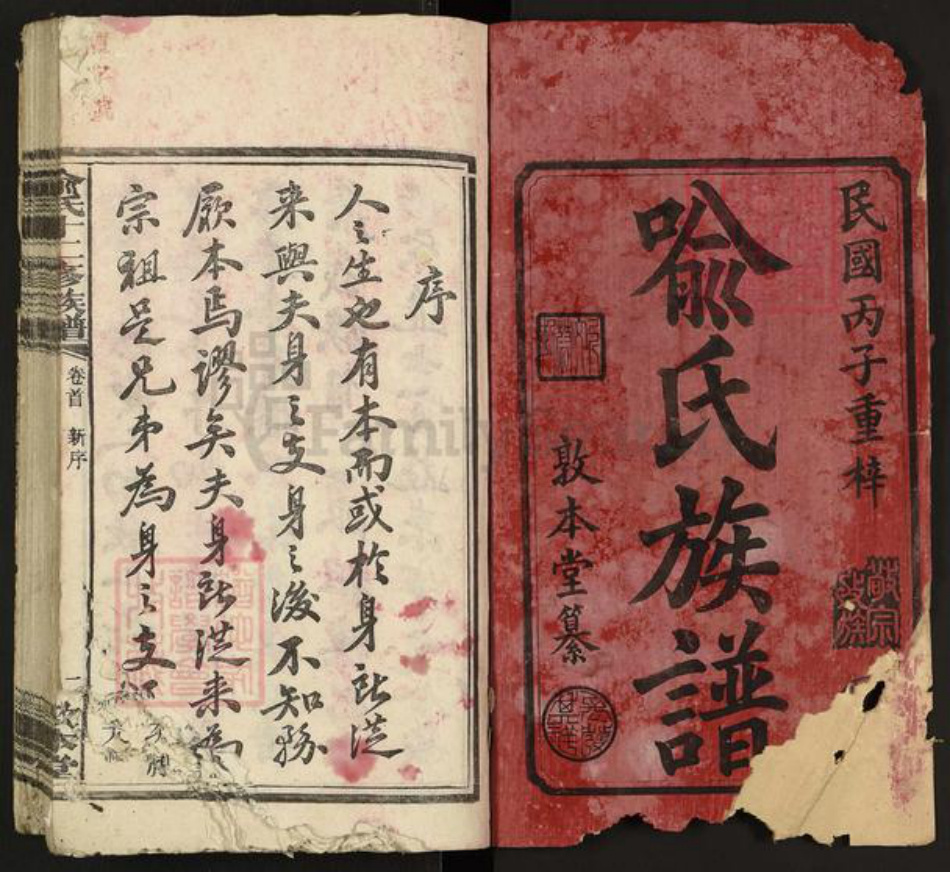 民國丙子重梓
敬宗收族
喩氏族譜
敦本堂纂
序
人之生也有本而或於身所從
来與夫身之支身之後不知務
厥本焉謬矣夫身所從来為
宗祖是兄弟為身之支如
喻氏十二修族譜 卷首 新序 一 敦本堂